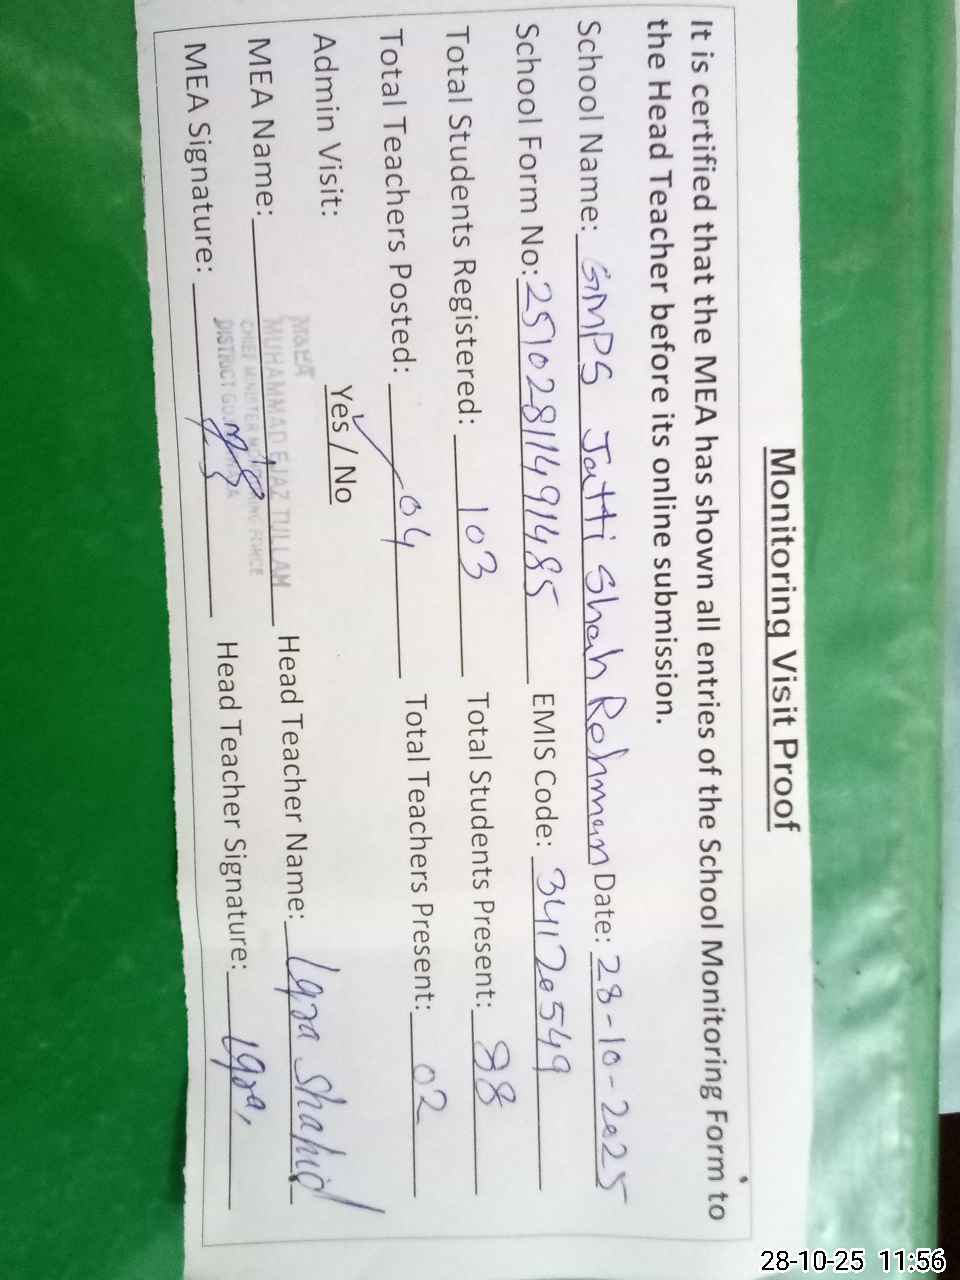 Monitoring Visit Proof
It is certified that the MEA has shown all entries of the School Monitoring Form to
the Head Teacher before its online submission.
School Name: GMPS Jatti Shah Rehman Date: 28-10-2025
School Form No: 25102811491485 EMIS Code: 34120549
Total Students Registered: 103 Total Students Present: 88
Total Teachers Posted: 04 Total Teachers Present: 02
Admin Visit: Yes / No
M&EA
MUHAMMAD EJAZ TULLAM
CHIEF MINISTER MONITORING FORCE
DISTRICT
MEA Name: Head Teacher Name: Iqra Shahid
MEA Signature: Head Teacher Signature: Iqra,
28-10-25 11:56